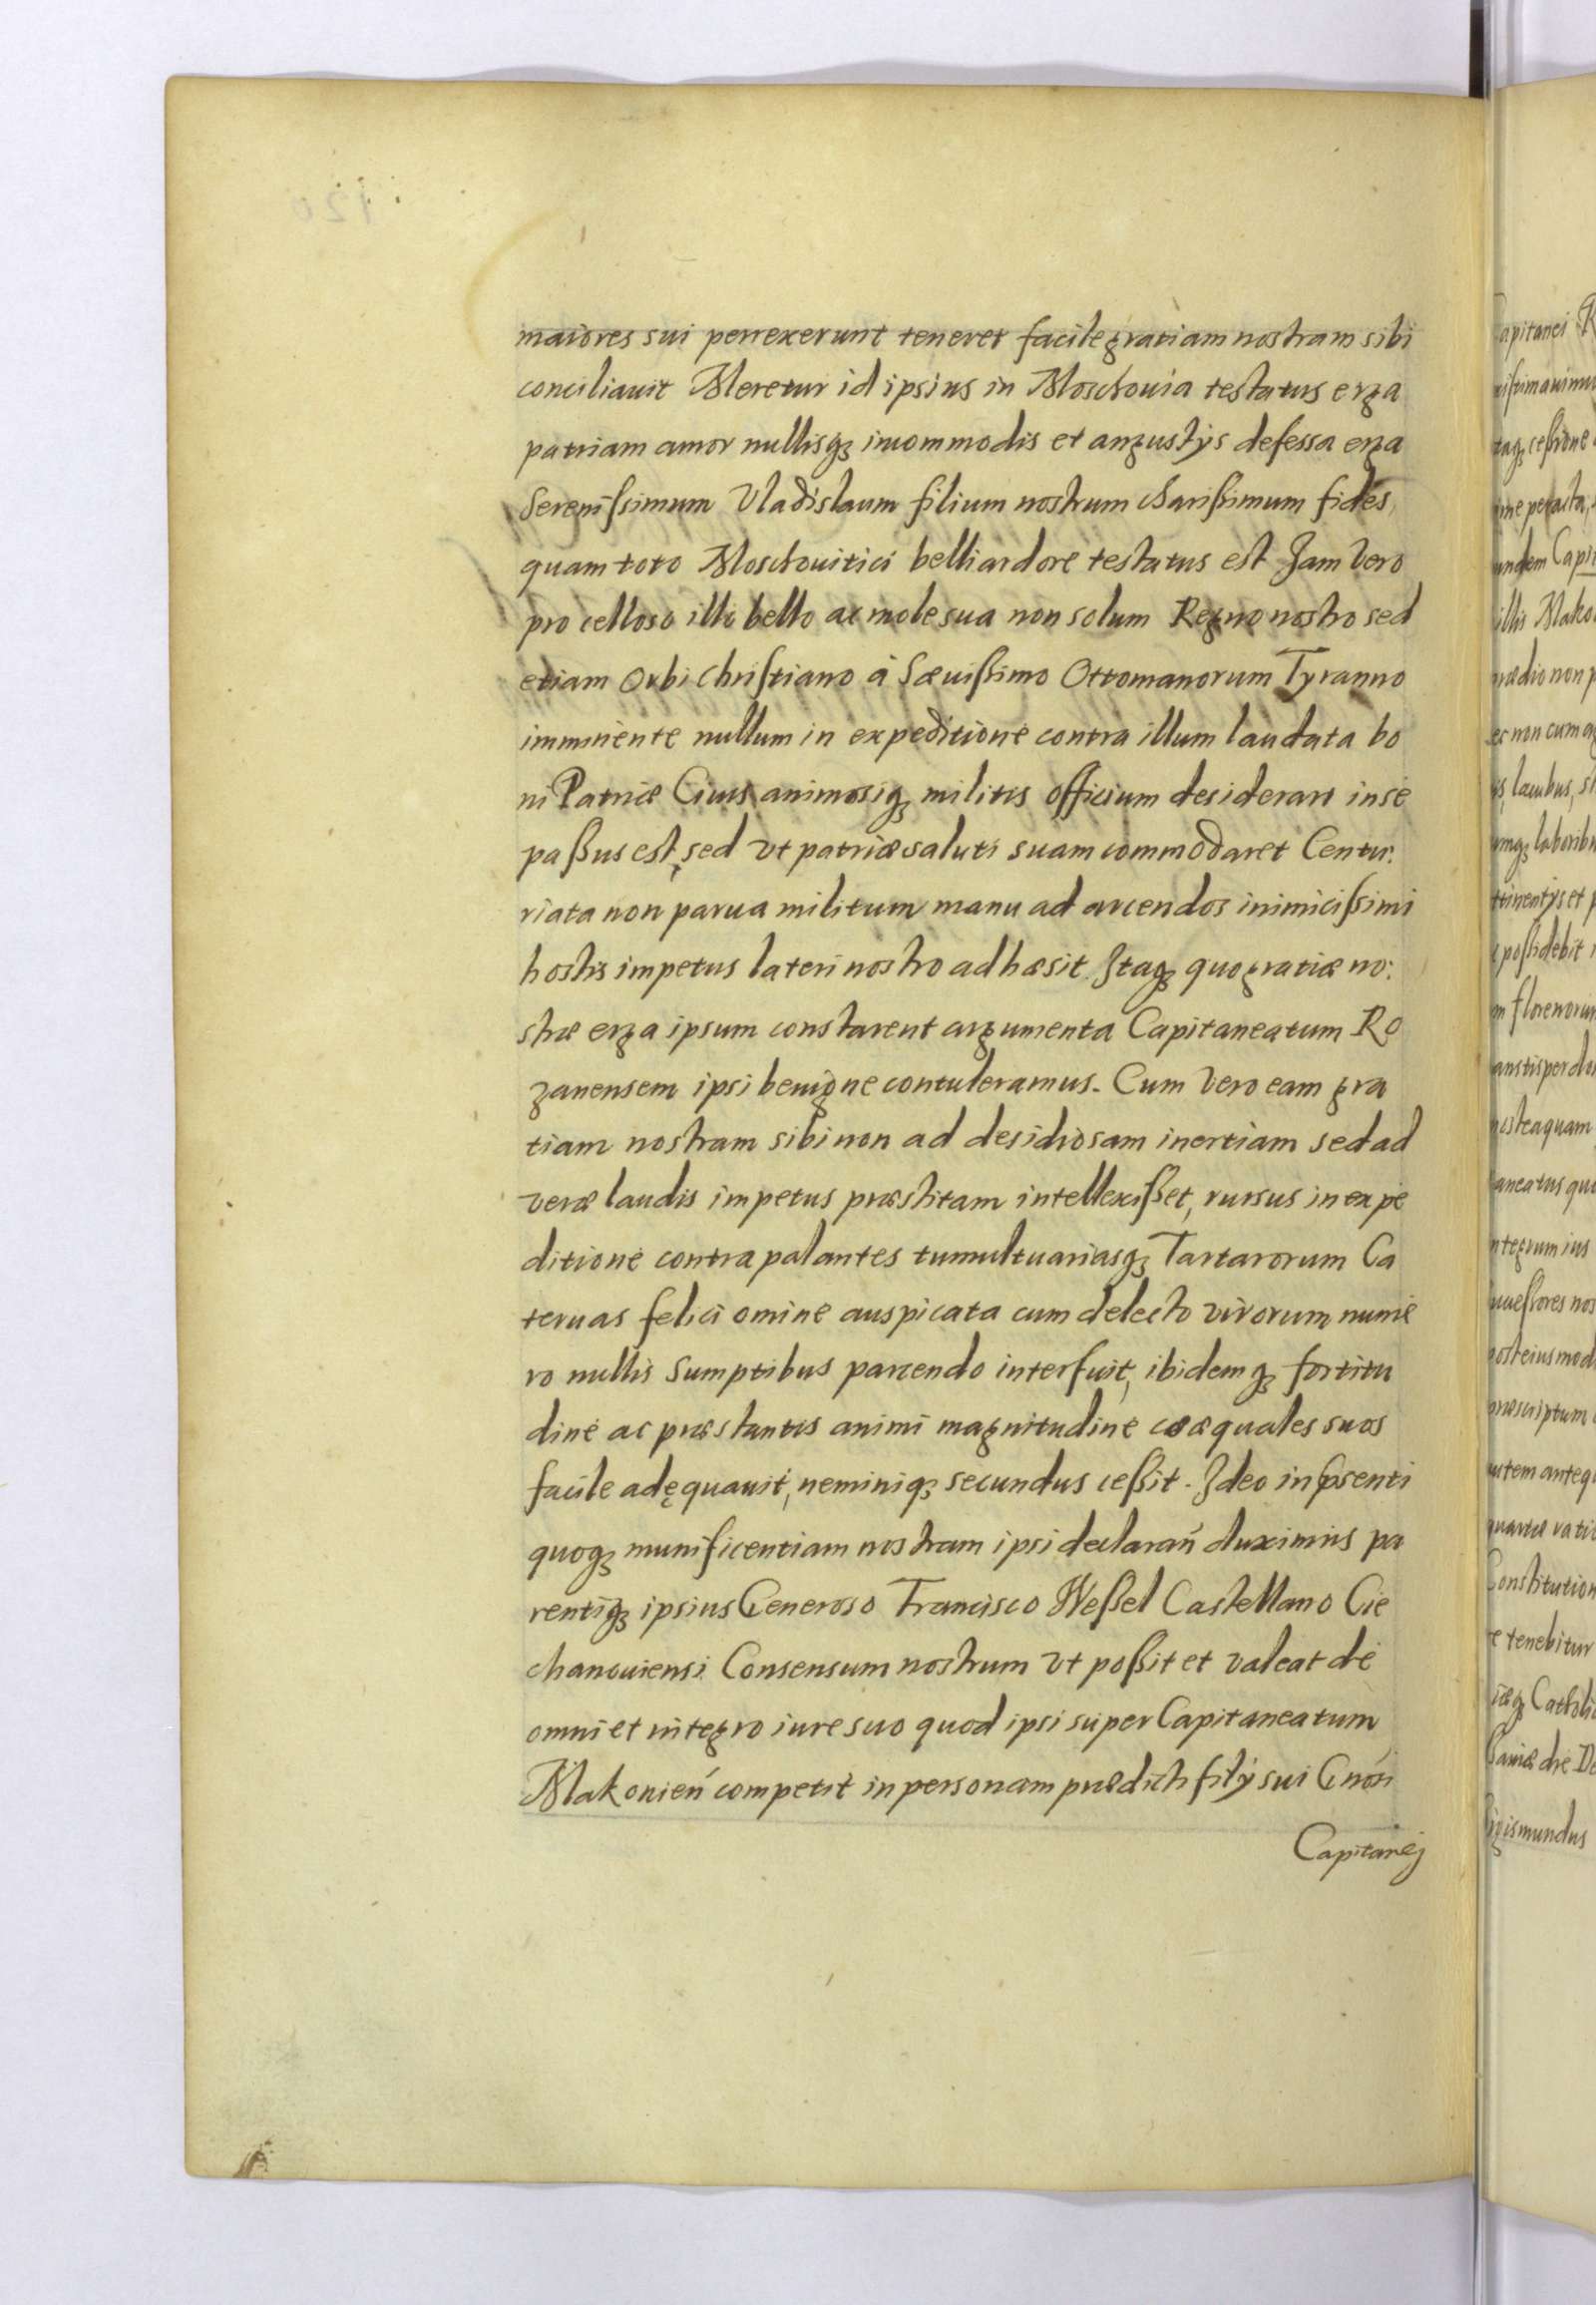 maiores sui perrexerunt teneret facile gratiam nostram sibi
conciliauit Meretur id ipsius in Moschouia testatus erga
patriam amor nullisq₃ incommodis et angustijs defessa erga
Serenissimum Vladislaum filium nostrum charissimum fides,
quam toto Moschouitici belli ardore testatus est Jam vero
procelloso illi bello ac mole sua non solum Regno nostro sed
etiam Orbi Christiano à Sæuissimo Ottomanorum Tyranno
imminente nullum in expeditione contra illum laudata bo
ni Patriæ Ciuis animosiq₃ militis officium desiderari in se
passus est, sed vt patriæ saluti suam commodaret Centu:
riata non parua militum manu ad arcendos inimicissimi
hostis impetus lateri nostro adhæsit Itaq₃ quo gratiæ no:
stræ erga ipsum constarent argumenta Capitaneatum Ro
zanensem ipsi benigne contuleramus. Cum vero eam gra
tiam nostram sibi non ad desidiosam inertiam sed ad
veræ laudis impetus præstitam intellexisset, rursus in expe
ditione contra palantes tumultuariasq₃ Tartarorum Ca
teruas felici omine auspicata cum delecto virorum nume
ro nullis sumptibus parcendo interfuit, ibidemq₃ fortitu
dine ac præstantis animi magnitudine coæquales suos
facile adęquauit, neminiq₃ secundus cessit. Ideo in p̄senti
quoq₃ munificentiam nostram ipsi declarañ duximus pa
rentiq₃ ipsius Generoso Francisco Wessel Castellano Cie
chanouiensi Consensum nostrum vt possit et valeat de
omni et integro iure suo quod ipsi super Capitaneatum
Makonieñ competit in personam prædicti filÿ sui Gnōsi
Capitanej
120
apitanei R
issimauimus
taq₃ cessione
ime peracta,
undem Capit
illis Mako
rædio non p
ec non cum ag
ijs, lacubus, si
umq₃ laboribu
ttinentijs et p
possidebit
m florenorum
anstis per du
osteaquam
aneatus quo
ntegrum ius
uccessores nos
osteiusmodi
præscriptum
utem anteq
quartæ ratio
Constitution
e tenebitur
iæq₃ Catholic
sauiæ die De
igismundus